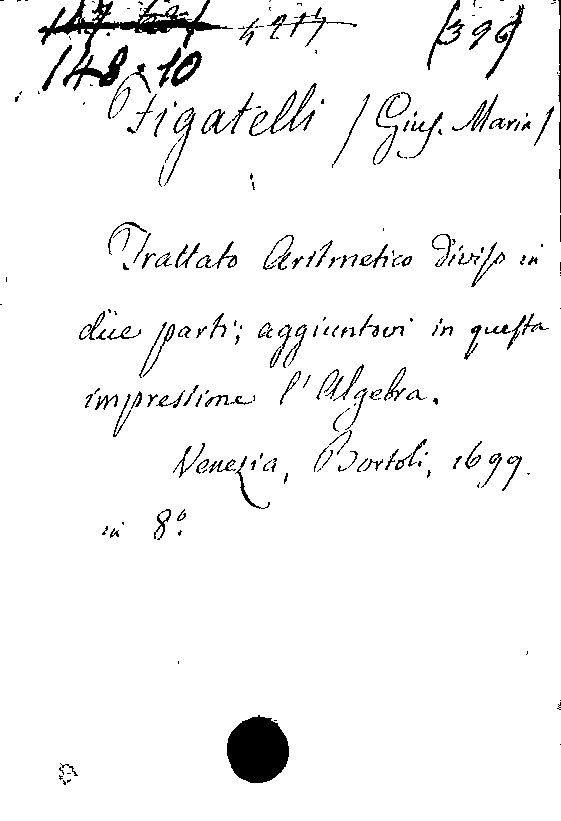 (396)
148.10
Figatelli /Gius. Maria/
Trattato Aritmetico diviso in
düe parti; aggiuntovi in questa
impressione l'Algebra.
Venezia, Bortoli, 1699.
in 8º.